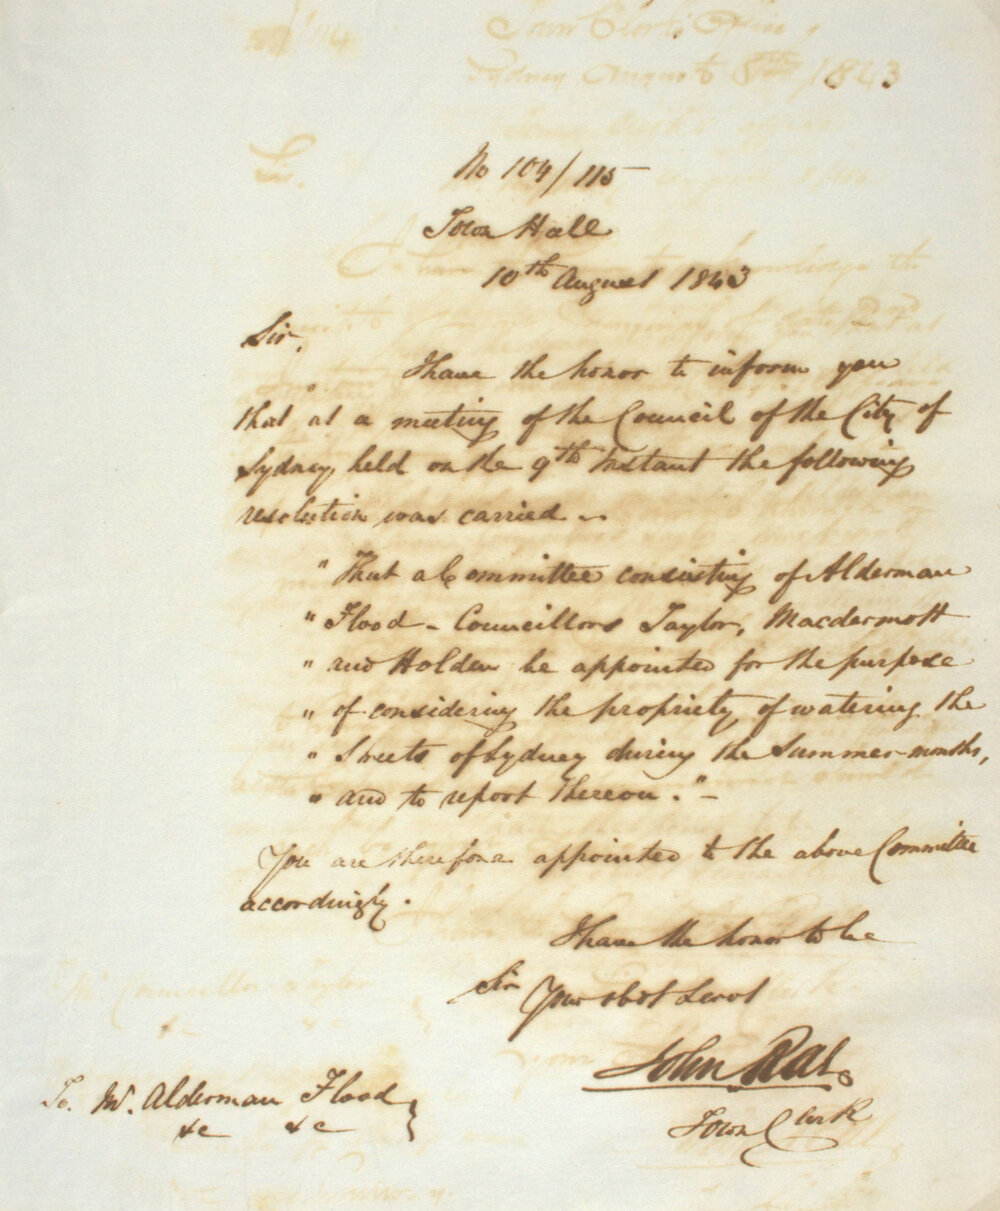 No 104/115
Town Hall
10th August 1843
Sir,
I have the honor to inform you
that at a meeting of the Council of the City of
Sydney, held on the 9th Instant the following
resolution was carried -
"That a Committee consisting of Alderman
" Flood - Councillors Taylor, Macdermott
" and Holden be appointed for the purpose
" of considering the propriety of watering the
" Streets of Sydney during the Summer months,
" and to report thereon." -
You are therefore appointed to the above Committee
accordingly.
I have the honor to be
Sir
Your obdt Servt
John Rae
Town Clerk
To. Mr. Alderman Flood
&c &c